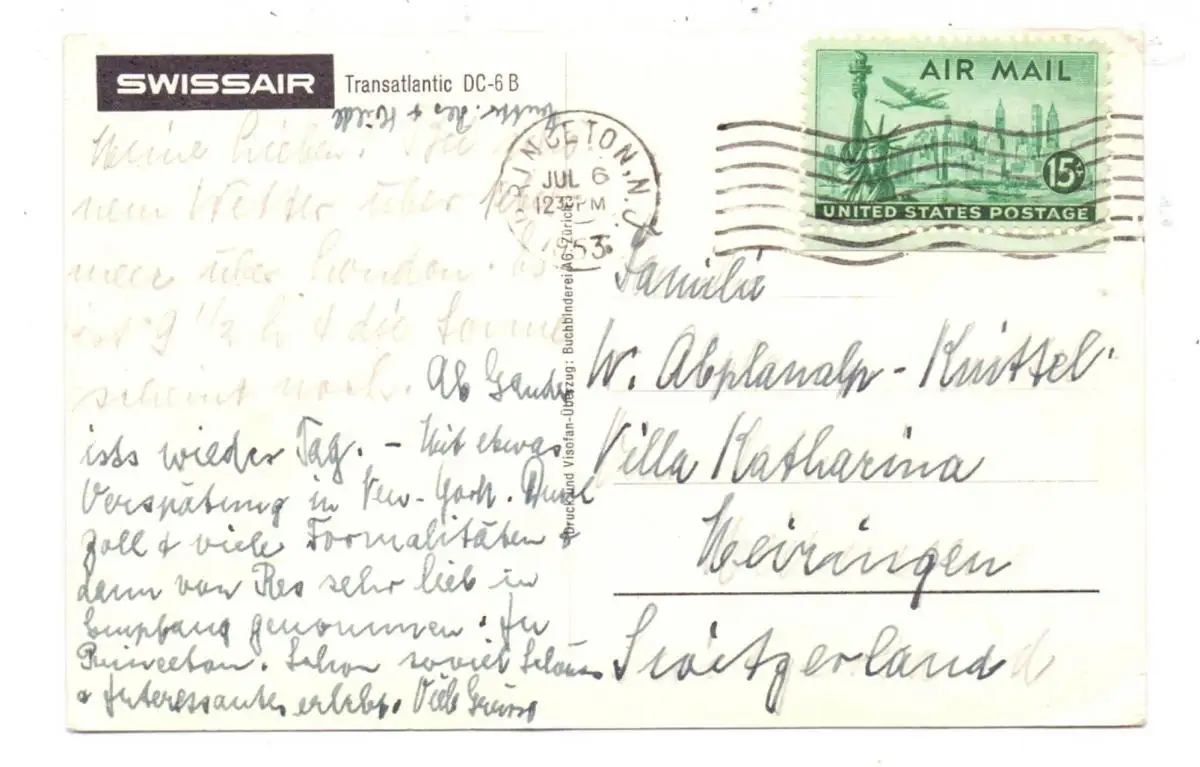 SWISSAIR Transatlantic DC-6 B
Res + Hilde
Meine Lieben.
nem Wetter über
meer über London. es
ist 9 1/2 h & die Sonne
scheint noch. Ab Gander
ists wieder Tag. – Mit etwas
Verspätung in New-York.
Zoll & viele Formalitäten &
dann von Res sehr lieb in
Empfang genommen. In
Princeton. Schon soviel Schönes
& Interessantes erlebt. Viele Grüsse
Druck und Visofan-Überzug: Buchbinderei AG. Zürich
PRINCETON, N.J.
JUL 6
12 PM
1953
AIR MAIL
15¢
UNITED STATES POSTAGE
Familie
W. Abplanalp-Knittel
Villa Katharina
Meiringen
Switzerland